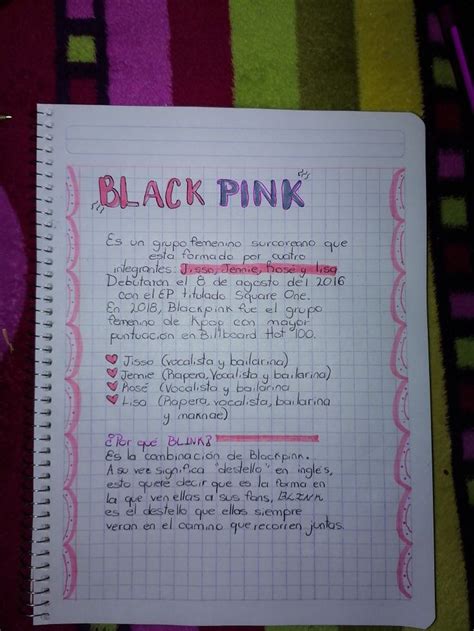 BLACK PINK
Es un grupo femenino surcoreano que
está formado por cuatro
integrantes Jisso, Jennie, Rosé y Lisa
Debutaron el 8 de agosto del 2016
con el EP titulado Square One.
En 2018, Blackpink fue el grupo
femenino de Kpop con mayor
puntuación en Billboard Hot 100.
Jisso (vocalista y bailarina)
Jennie (Rapera, Vocalista y bailarina)
Rosé (Vocalista y bailarina)
Lisa (Rapera, vocalista, bailarina
y maknae)
¿Por qué BLINK?
Es la combinación de Blackpink.
A su vez significa "destello" en inglés,
esto quiere decir que es la forma en
la que ven ellas a sus fans, BLINK
es el destello que ellas siempre
verán en el camino que recorren juntas.